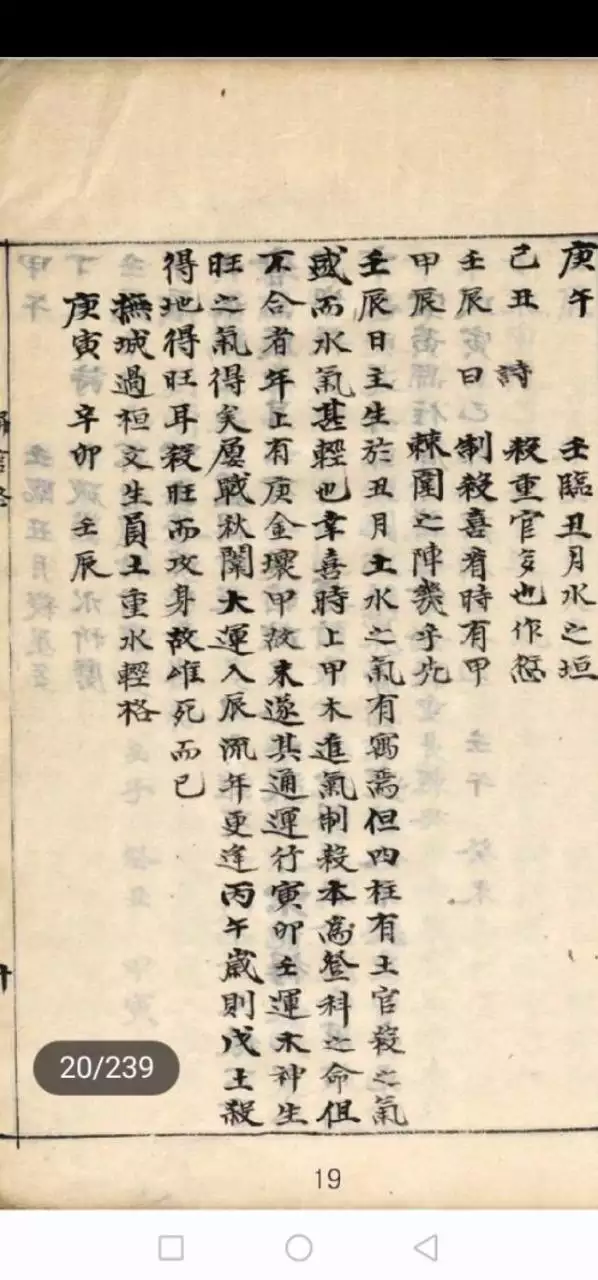 庚午 壬臨丑月水之垣
己丑 詩 殺重官多也作愆
壬辰 曰 制殺喜看時有甲
甲辰 棘闈之陣幾乎先
壬辰日主生於丑月土水之氣有寓焉但四柱有土官殺之氣
盛而水氣甚輕也幸喜時上甲木進氣制殺本為登科之命但
不合者年上有庚金壞甲故未遂其通運行寅卯壬運木神生
旺之氣得矣屢戰秋闈大運入辰流年更逢丙午歲則戊土殺
得地得旺耳殺旺而攻身故唯死而已
撫城過桓文生員土重水輕格
庚寅 辛卯 壬辰
20/239
19